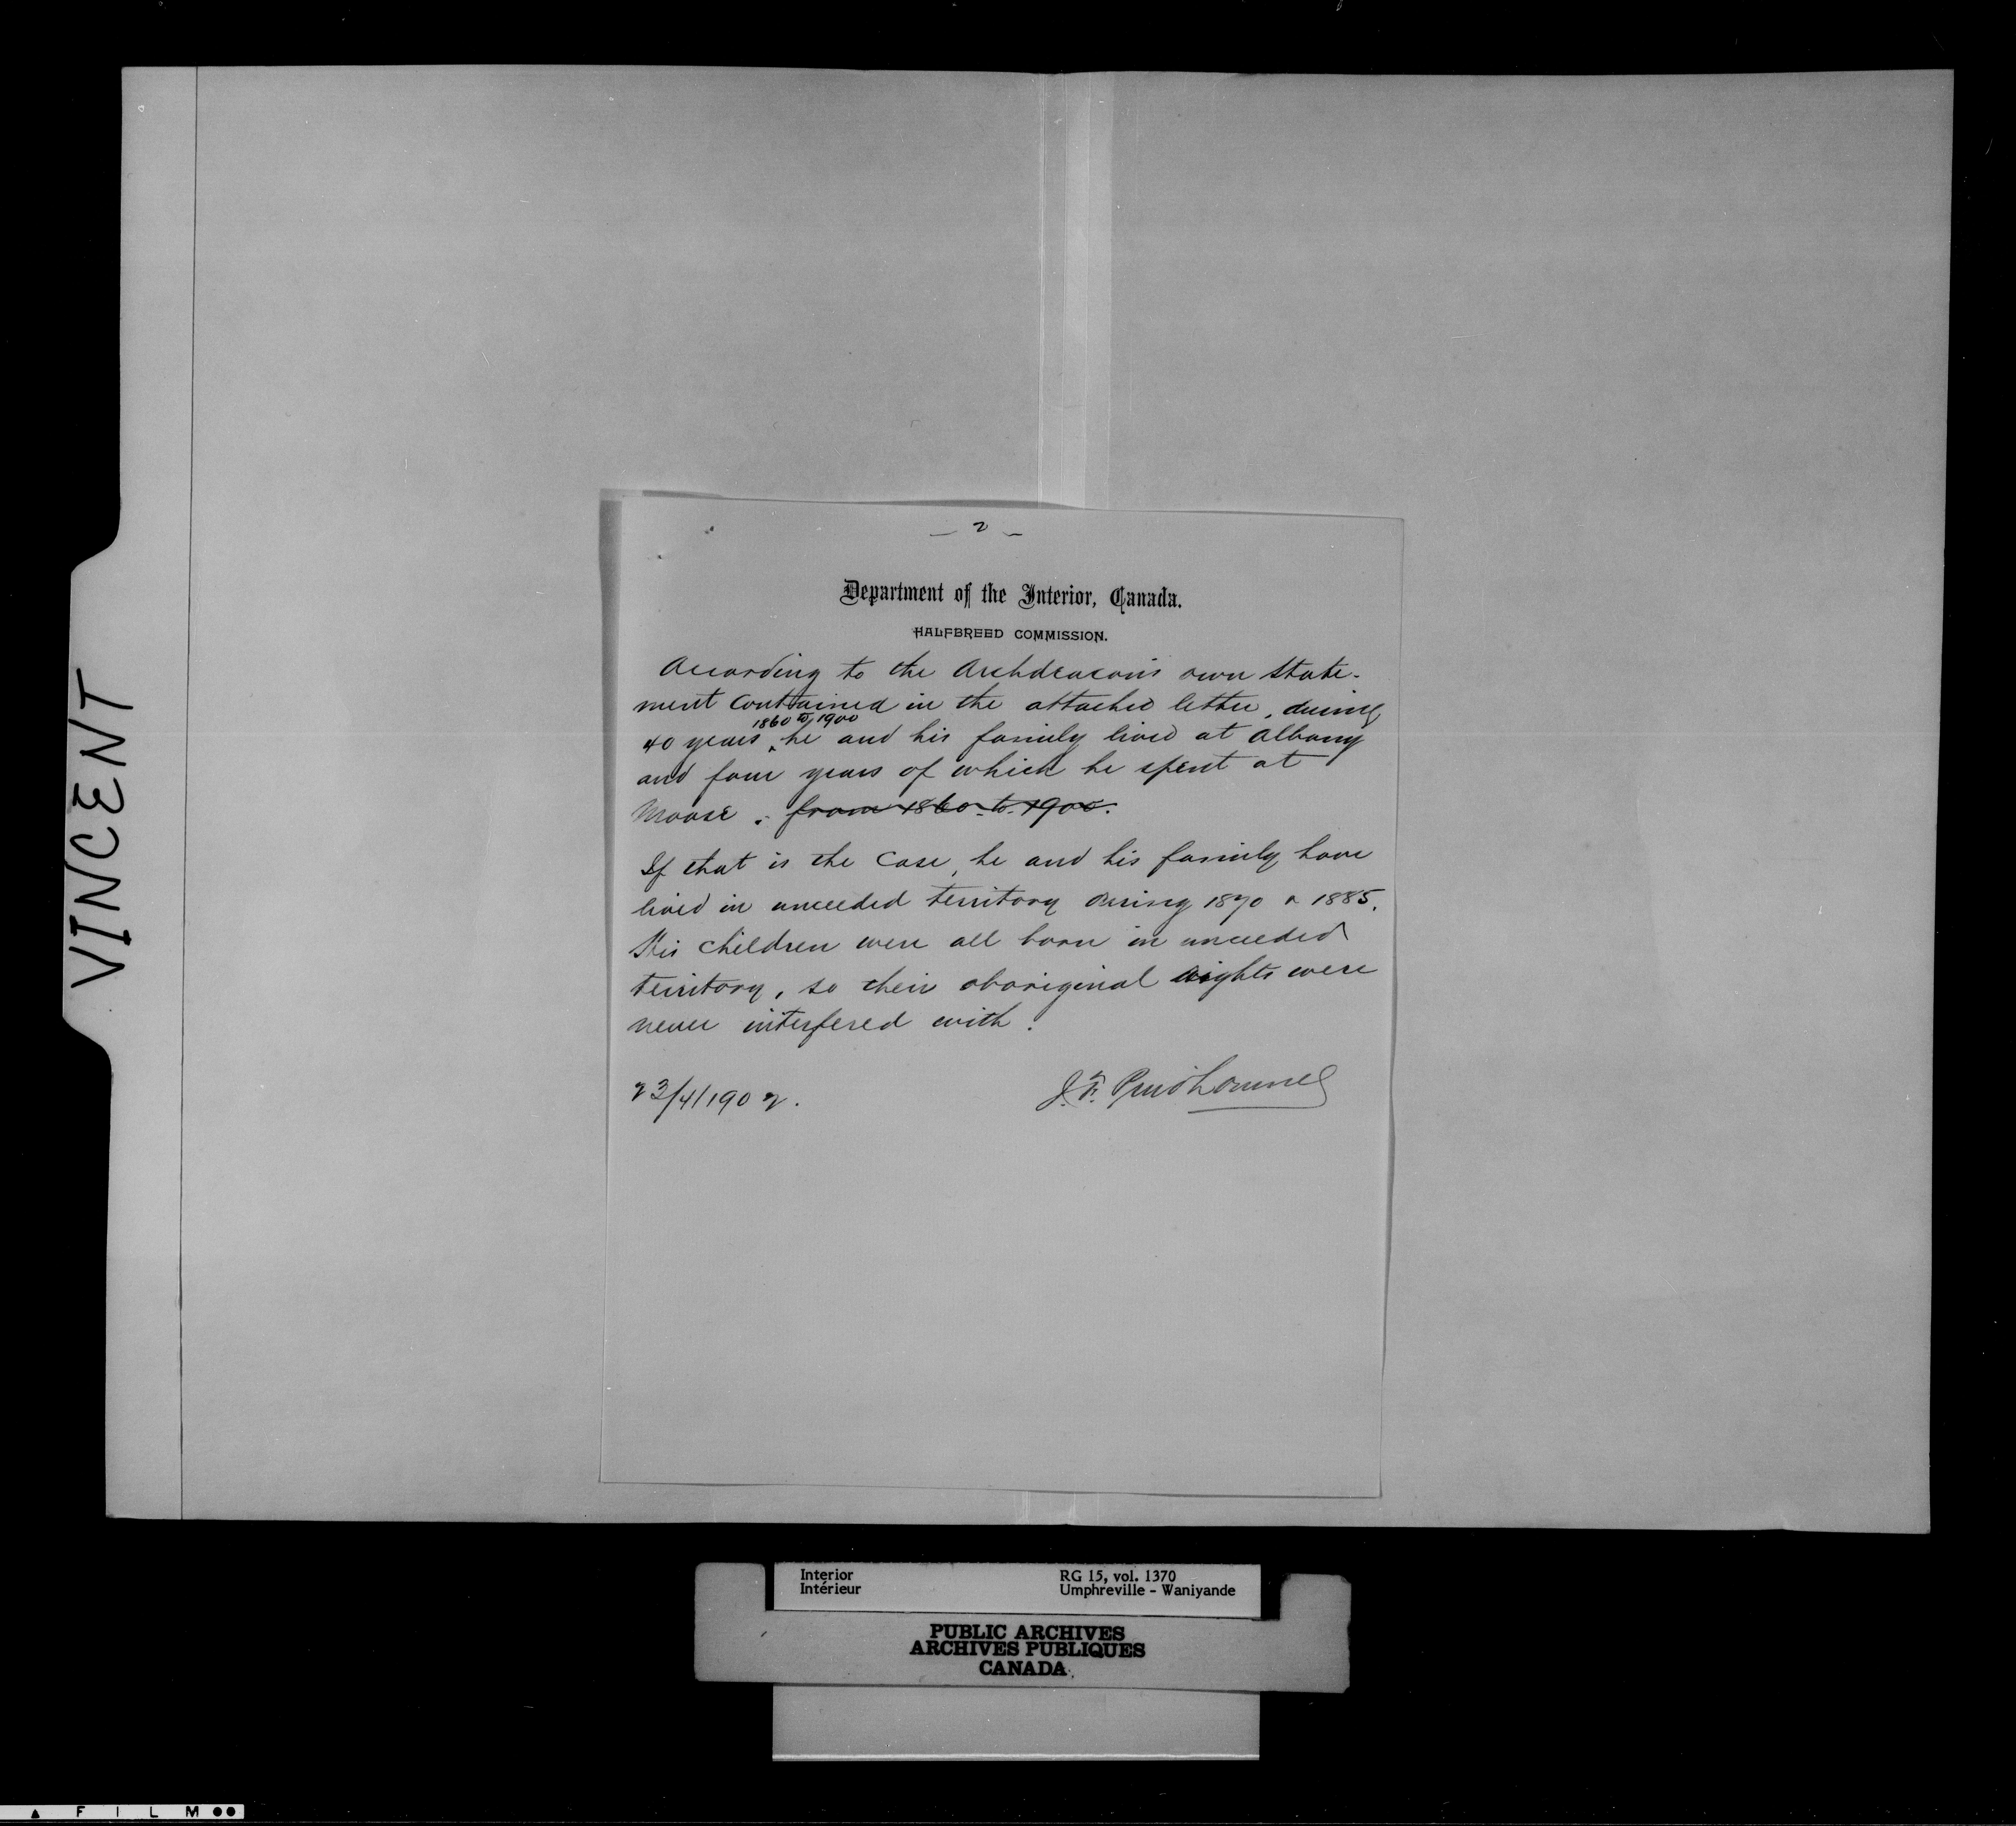 VINCENT
— 2 —
Department of the Interior, Canada.
HALFBREED COMMISSION.
According to the Archdeacon's own state-
ment contained in the attached letter, during
1860 to 1900
40 years he and his family lived at Albany
and four years of which he spent at
Moose. from 1860 to 1900.
If that is the case, he and his family have
lived in unceeded territory during 1870 & 1885.
His children were all born in unceeded
territory, so their aboriginal rights were
never interfered with.
23/4/1902.
J. F. Prudhomme
Interior
Intérieur
RG 15, vol. 1370
Umphreville - Waniyande
PUBLIC ARCHIVES
ARCHIVES PUBLIQUES
CANADA
FILM